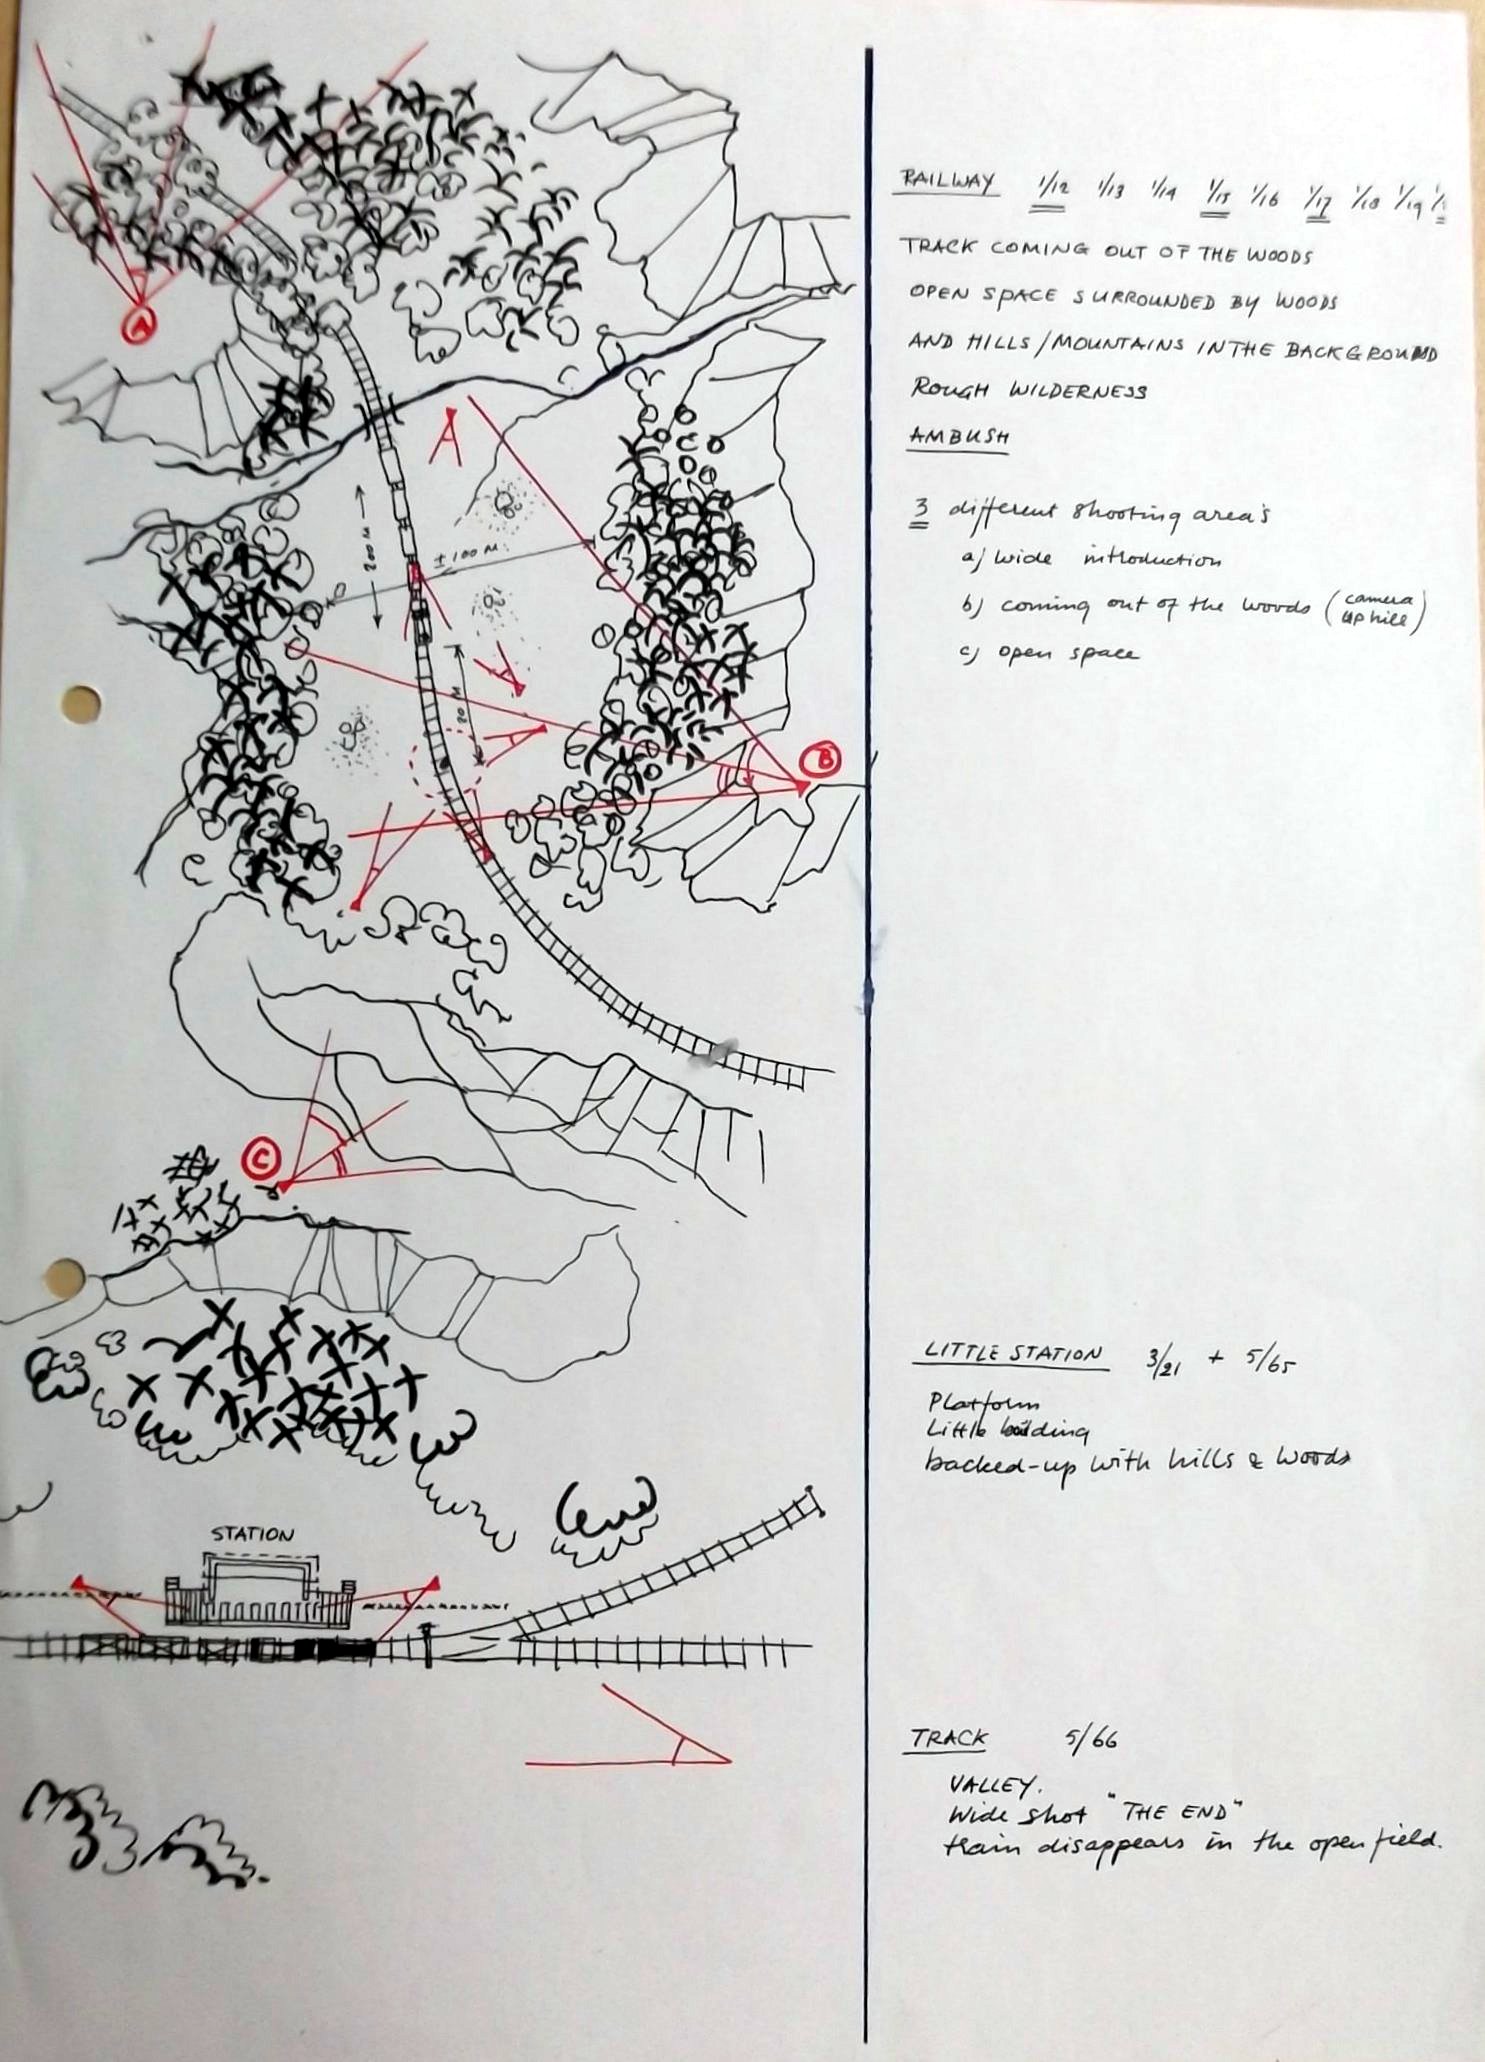 RAILWAY 1/12 1/13 1/14 1/15 1/16 1/17 1/18 1/19
TRACK COMING OUT OF THE WOODS
OPEN SPACE SURROUNDED BY WOODS
AND HILLS/MOUNTAINS IN THE BACKGROUND
ROUGH WILDERNESS
AMBUSH
3 different shooting area's
a) wide introduction
b) coming out of the woods (camera
up hill)
c) open space
A
200 M
± 100 M
B
C
STATION
LITTLE STATION 3/21 + 5/65
Platform
Little building
backed-up with hills & woods
TRACK 5/66
VALLEY.
Wide shot "THE END"
train disappears in the open field.